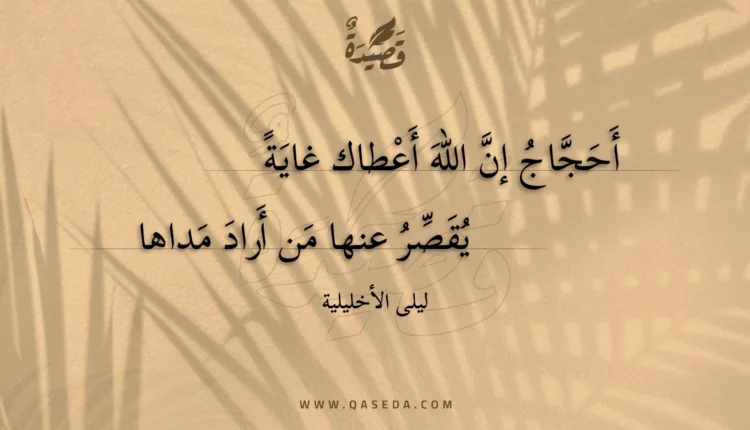 قَصِيدَةٌ
أَحَجَّاجُ إِنَّ اللهَ أَعْطاك غايَةً
يُقَصِّرُ عنها مَن أَرادَ مَداها
ليلى الأخليلية
WWW.QASEDA.COM